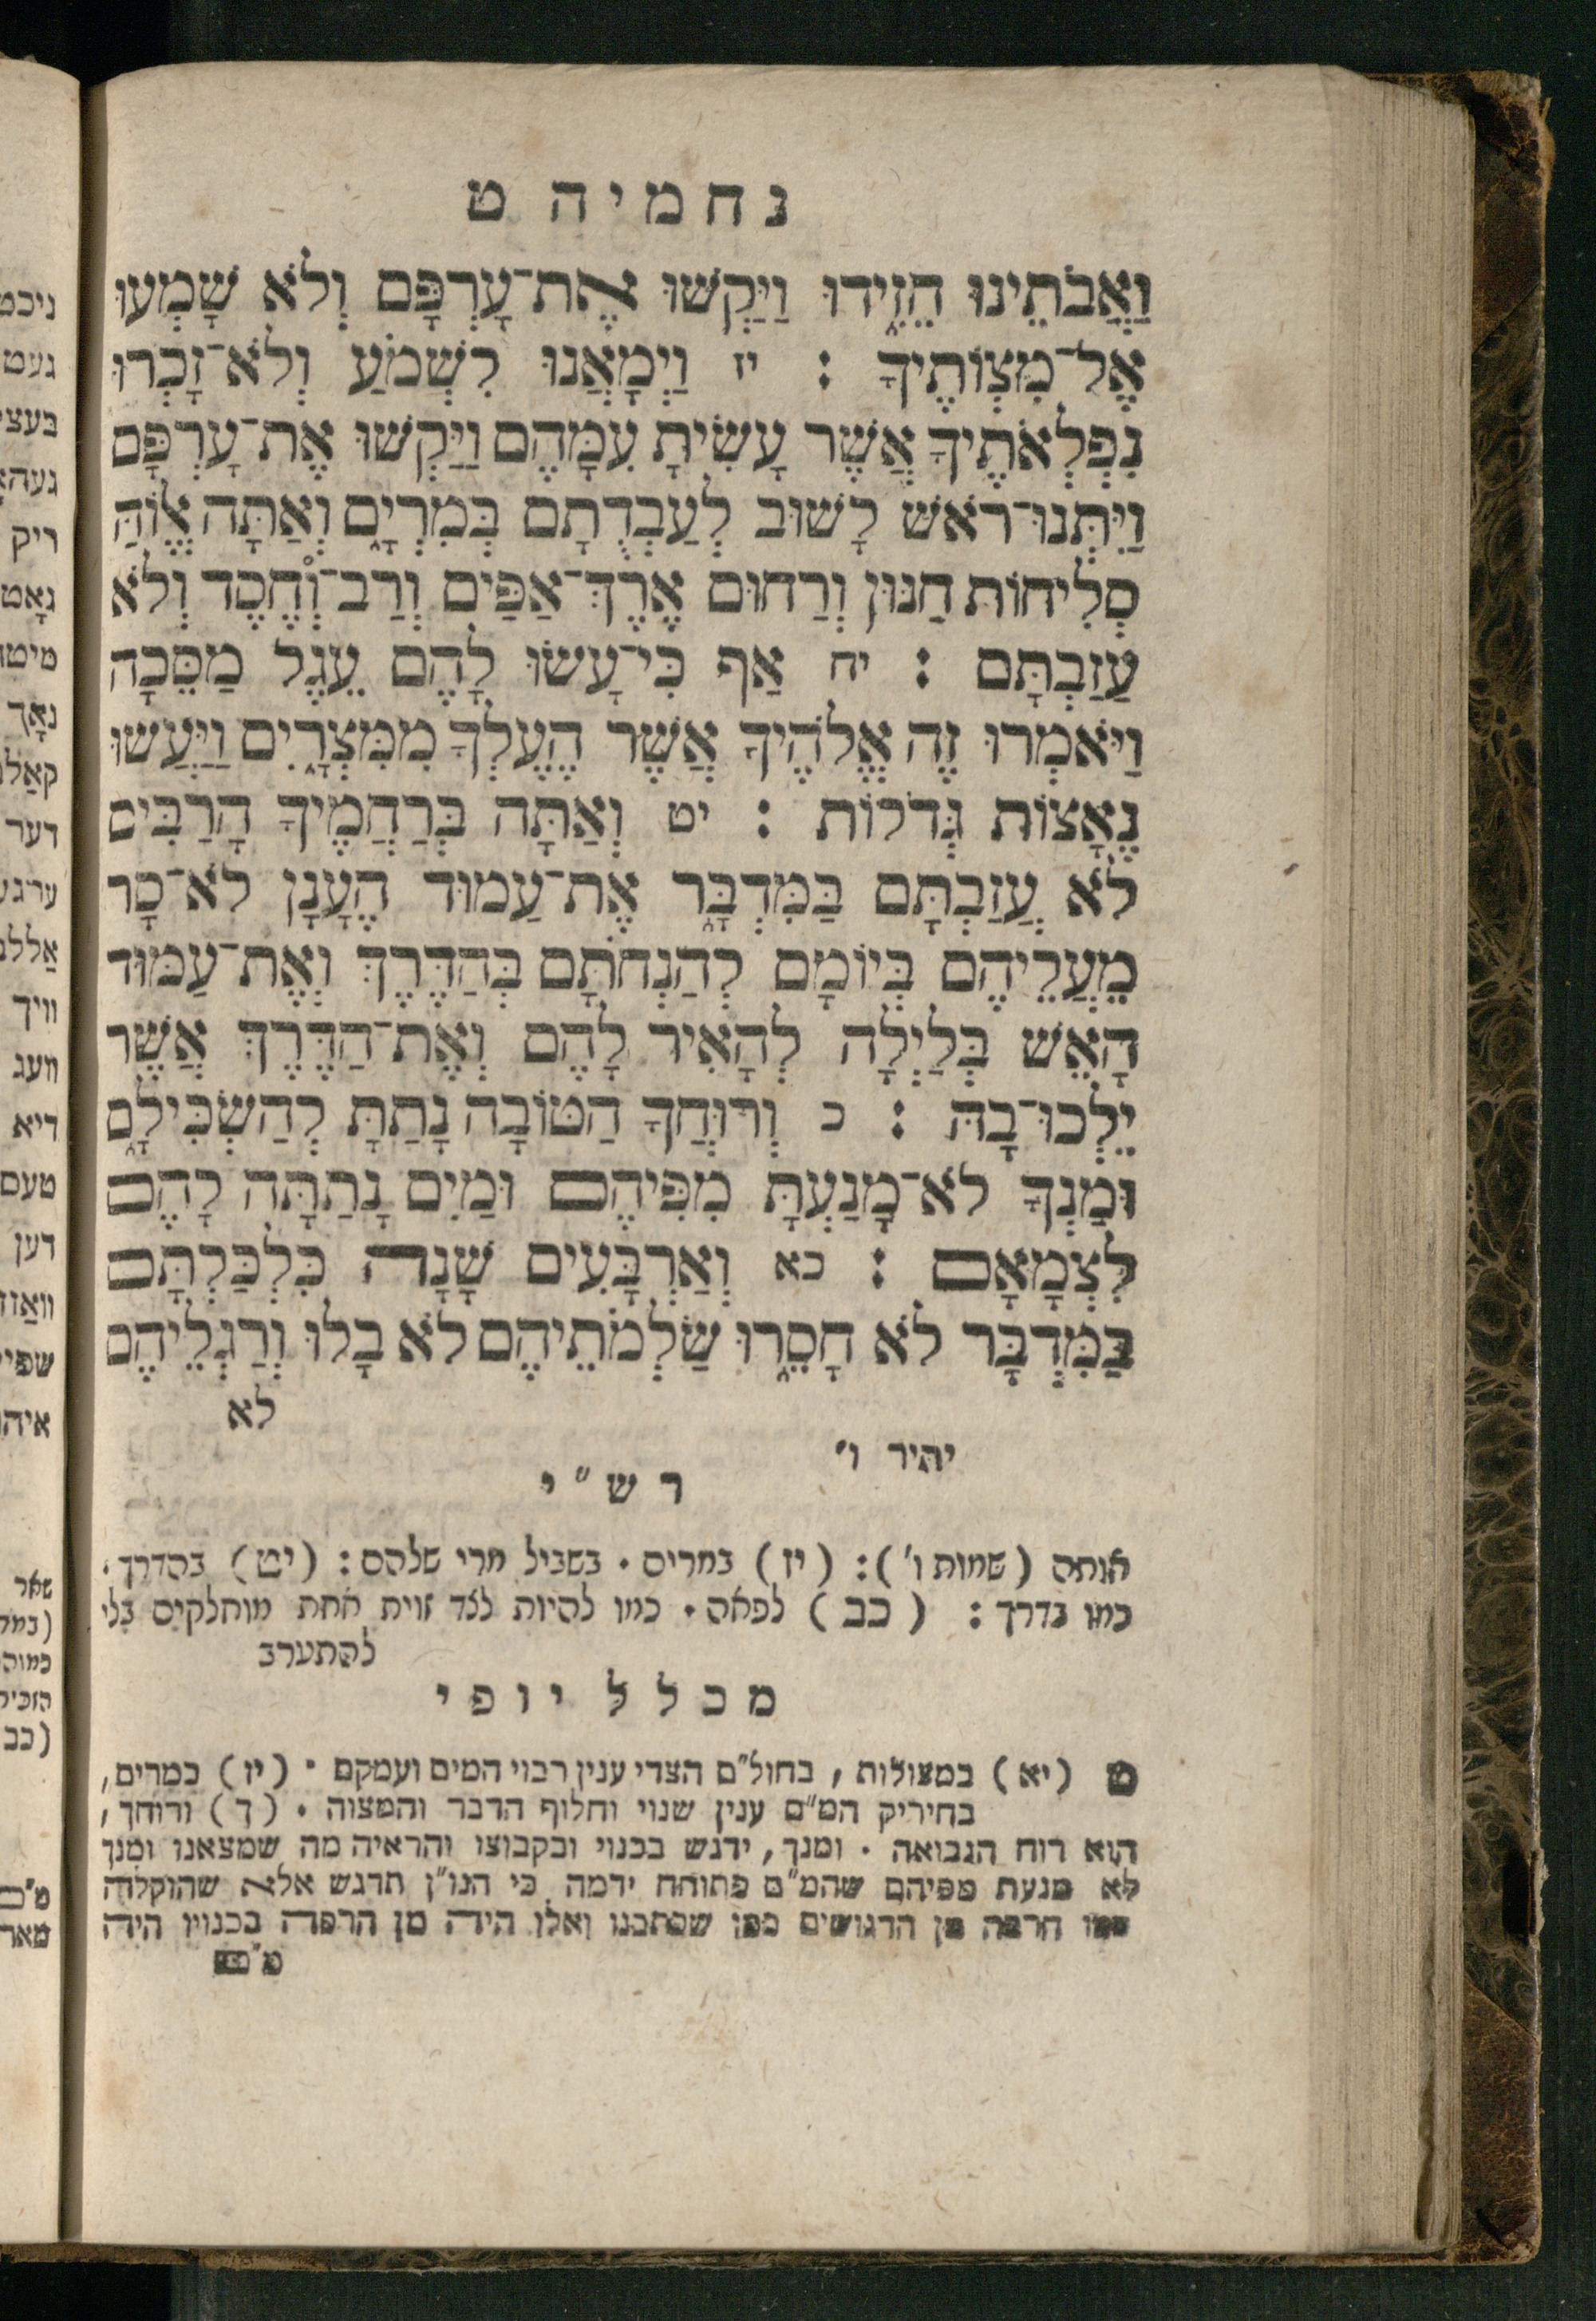 נחמיה ט
וַאֲבֹתֵינוּ הֵזִידוּ וַיַּקְשׁוּ אֶת־עָרְפָּם וְלֹא שָׁמְעוּ
אֶל־מִצְוֹתֶיךָ : יז וַיְמָאֲנוּ לִשְׁמֹעַ וְלֹא־זָכְרוּ
נִפְלְאֹתֶיךָ אֲשֶׁר עָשִׂיתָ עִמָּהֶם וַיַּקְשׁוּ אֶת־עָרְפָּם
וַיִּתְּנוּ־רֹאשׁ לָשׁוּב לְעַבְדֻתָם בְּמִרְיָם וְאַתָּה אֱלוֹהַּ
סְלִיחוֹת חַנּוּן וְרַחוּם אֶרֶךְ־אַפַּיִם וְרַב־וְחֶסֶד וְלֹא
עֲזַבְתָּם : יח אַף כִּי־עָשׂוּ לָהֶם עֵגֶל מַסֵּכָה
וַיֹּאמְרוּ זֶה אֱלֹהֶיךָ אֲשֶׁר הֶעֶלְךָ מִמִּצְרָיִם וַיַּעֲשׂוּ
נֶאָצוֹת גְּדֹלוֹת : יט וְאַתָּה בְּרַחֲמֶיךָ הָרַבִּים
לֹא עֲזַבְתָּם בַּמִּדְבָּר אֶת־עַמּוּד הֶעָנָן לֹא־סָר
מֵעֲלֵיהֶם בְּיוֹמָם לְהַנְחֹתָם בְּהַדֶּרֶךְ וְאֶת־עַמּוּד
הָאֵשׁ בְּלַיְלָה לְהָאִיר לָהֶם וְאֶת־הַדֶּרֶךְ אֲשֶׁר
יֵלְכוּ־בָהּ : כ וְרוּחֲךָ הַטּוֹבָה נָתַתָּ לְהַשְׂכִּילָם
וּמַנְךָ לֹא־מָנַעְתָּ מִפִּיהֶם וּמַיִם נָתַתָּה לָהֶם
לִצְמָאָם : כא וְאַרְבָּעִים שָׁנָה כִּלְכַּלְתָּם
בַּמִּדְבָּר לֹא חָסֵרוּ שַׂלְמֹתֵיהֶם לֹא בָלוּ וְרַגְלֵיהֶם
לא
יתיר ו'
רש"י
אותה (שמות ו') : (יז) במרים . בשביל מרי שלהם : (יט) בהדרך .
כמו בדרך : (כב) לפאה . כמו להיות לצד זוית אחת מוחלקים בלי
להתערב
מכלל יופי
ט (יא) במצולות , בחול"ם הצדי ענין רבוי המים ועמקם . (יז) במרים ,
בחיריק המ"ם ענין שנוי וחלוף הדבר והמצוה . (ך) ורוחך ,
הוא רוח הנבואה . ומנך , ידגש בכנוי ובקבוצו והראיה מה שמצאנו ומנך
לא מנעת מפיהם שהמ"ם פתוחה ידמה כי הנו"ן תדגש אלא שהוקלה
כמו הרבה מן הדגושים כמו שכתבנו ואלו היה מן הרפה בכנויו היה
מ"ם